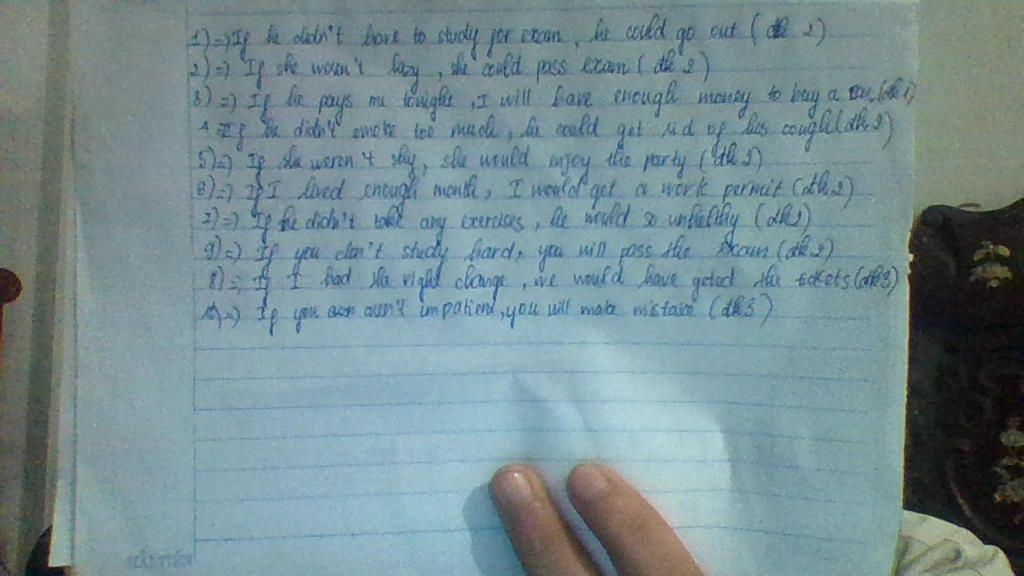 1) => If he didn't have to study for exam, he could go out (đk 2)
2) => If she weren't lazy, she could pass exam (đk 2)
3) => If he pays me tonight, I will have enough money to buy a car (đk 1)
4 = If he didn't smoke too much, he could get rid of his cough (đk 2)
5) => If she weren't shy, she would enjoy the party (đk 2)
6) => If I lived enough month, I would get a work permit (đk 2)
7) => If he didn't take any exercises, he would so unhelthy (đk 2)
9) => If you don't study hard, you will pass the exam (đk 2)
8) =; If I had the right change, we would have geted the tickets (đk 3)
=) If you aren't impatient, you will make mistake (đk 3)
HẢI TIẾN